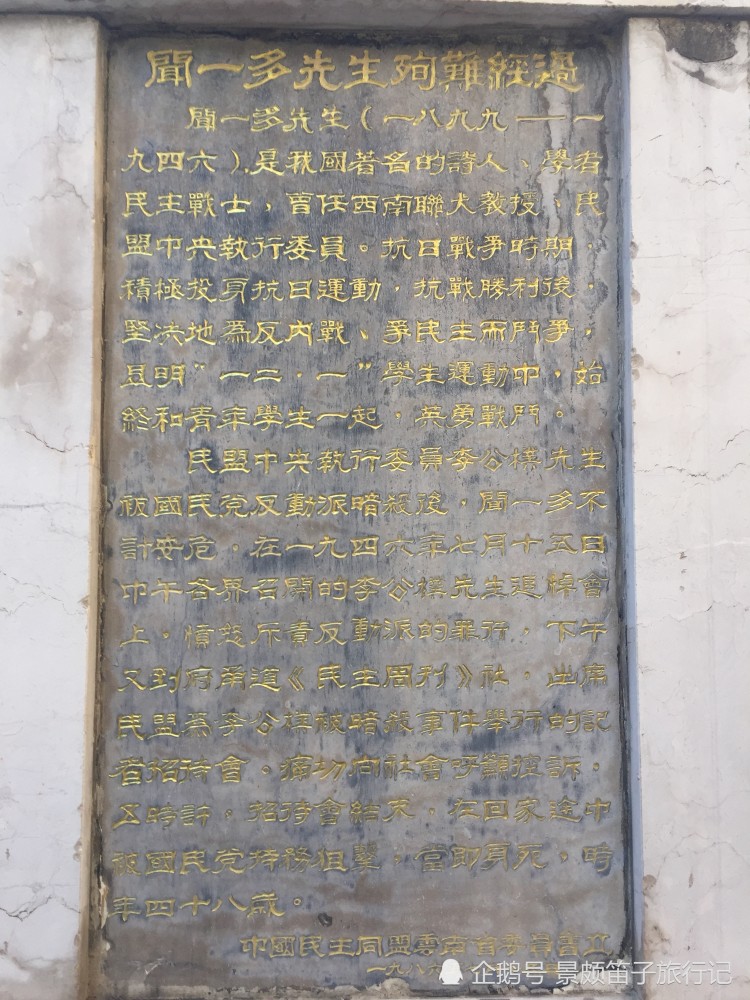 聞一多先生殉難經過
聞一多先生（一八九九——一
九四六）是我國著名的詩人、學者
民主戰士，曾任西南聯大教授、民
盟中央執行委員。抗日戰爭時期，
積極投身抗日運動，抗戰勝利後，
堅決地為反內戰、爭民主而鬥爭，
且明“一二·一”學生運動中，始
終和青年學生一起，英勇戰鬥。
民盟中央執行委員李公樸先生
被國民党反動派暗殺後，聞一多不
計安危，在一九四六年七月十五日
中午各界召開的李公樸先生追悼會
上，憤怒斥責反動派的罪行，下午
又到府甬道《民主周刊》社，出席
民盟為李公樸被暗殺事件舉行的記
者招待會。痛切向社會呼籲控訴，
五時許，招待會結束，在回家途中
被國民党特務狙擊，當即身死，時
年四十八歲。
中國民主同盟雲南省委員會立
一九八六
企鹅号 景颇笛子旅行记